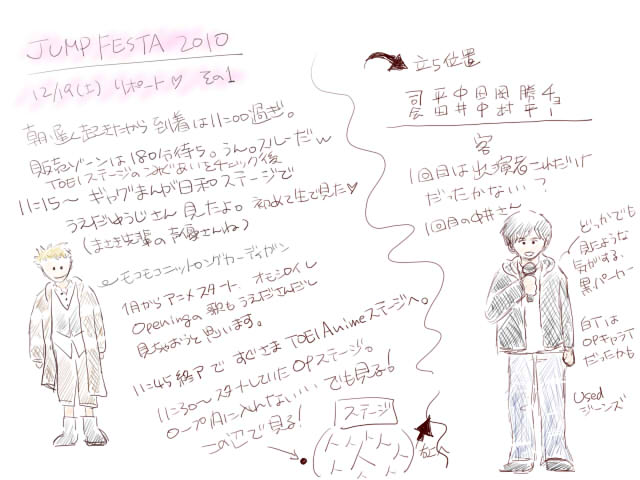 JUMP FESTA 2010
12/19(土) リポート♡ その1
朝、遅く起きたから 到着は11:00過ぎ。
販売ゾーンは180分待ち。うん。スルーだw
TOEIステージのこみぐあいをチェック後
11:15〜 ギャグまんが日和ステージで
うえだゆうじさん 見たよ。初めて生で見た♡
(まさき先輩の声優さんね)
モコモコニットロングカーディガン
1月からアニメスタート。オモシロイし
Openingの歌もうえださんだし
見ちゃおうと思います。
11:45終了で すぐさま TOEI Animeステージへ。
11:30〜スタートしていたOPステージ。
ロープ内に入れないい でも見る!
この辺で見る!
ステージ
立ち位置
司会 平田 中井 田中 田村 勝平 チョー
客
1回目は出演者これだけ
だったかない?
1回目の中井さん
どっかでも
見たような
気がする。
黒パーカー
白Tは
OPキャラT
だったかも
Used
ジーンズ